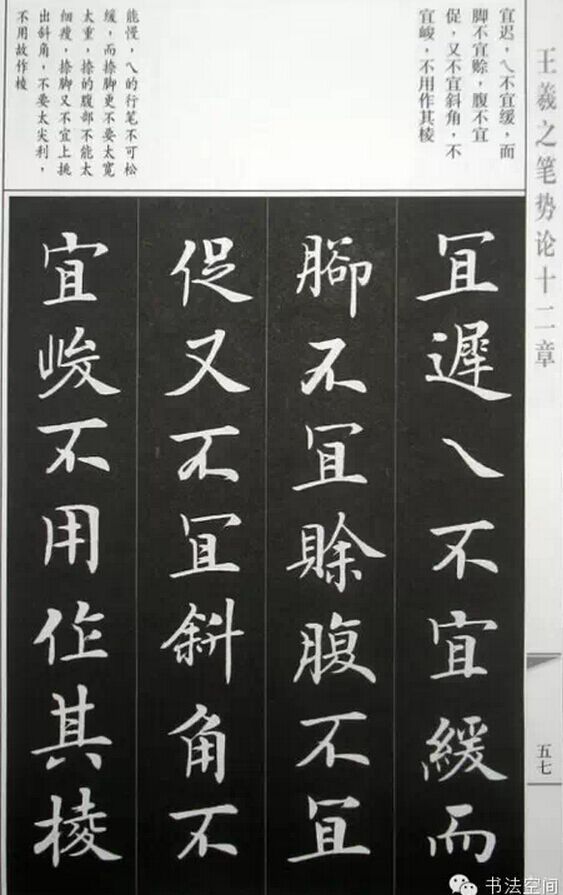 王羲之笔势论十二章
宜迟，乀不宜缓，而
脚不宜赊，腹不宜
促，又不宜斜角，不
宜峻，不用作其棱
能慢，乀的行笔不可松
缓，而捺脚更不要太宽
太重，捺的腹部不能太
细瘦，捺脚又不宜上挑
出斜角，不要太尖利，
不用故作棱
冝遲乀不宜緩而
腳不冝賖腹不冝
促又不冝斜角不
宜峻不用作其棱
五七
书法空间